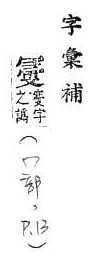 字彙補
變字
之譌
部, P.13)